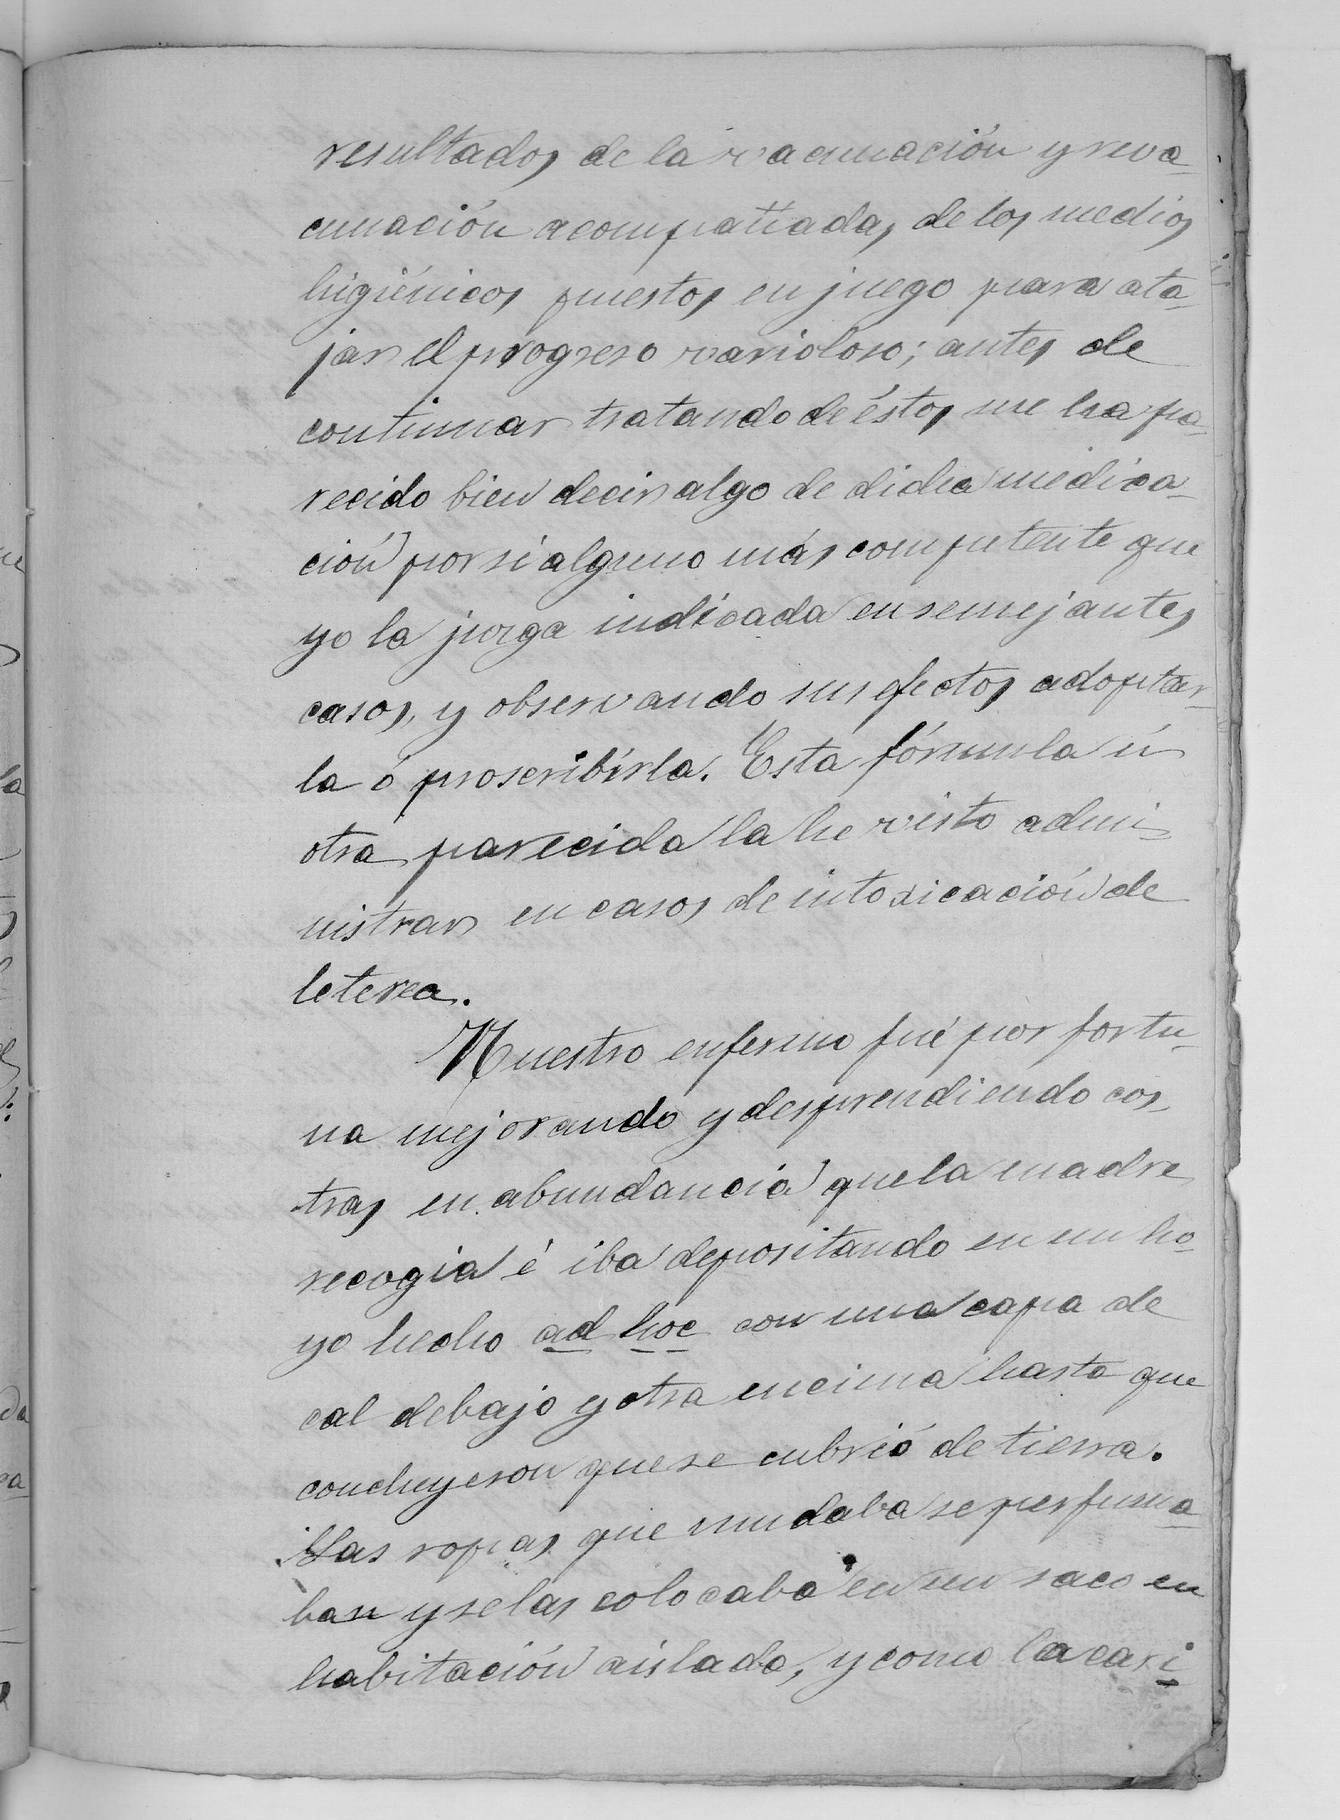 resultados de la vacunación y reva-
cunación acompañadas de los medios
higiénicos puestos en juego para ata-
jar el progreso varioloso; antes de
continuar tratando de éstos me ha pa-
recido bien decir algo de dicha medica-
ción por si alguno más competente que
yo la juzga indicada en semejantes
casos, y observando sus efectos adoptar-
la ó proscribirla. Esta fórmula ú
otra parecida la he visto admi-
nistrar en casos de intoxicación de
leterea.
Nuestro enfermo fué por fortu-
na mejorando y desprendiendo cos-
tras en abundancia que la madre
recogia é iba depositando en un ho-
yo hecho ad hoc con una capa de
cal debajo y otra encima hasta que
concluyeron que se cubrió de tierra.
Las ropas que mudaba se perfuma-
ban y se las colocaba en un saco en
habitación aislada, y como la cari-